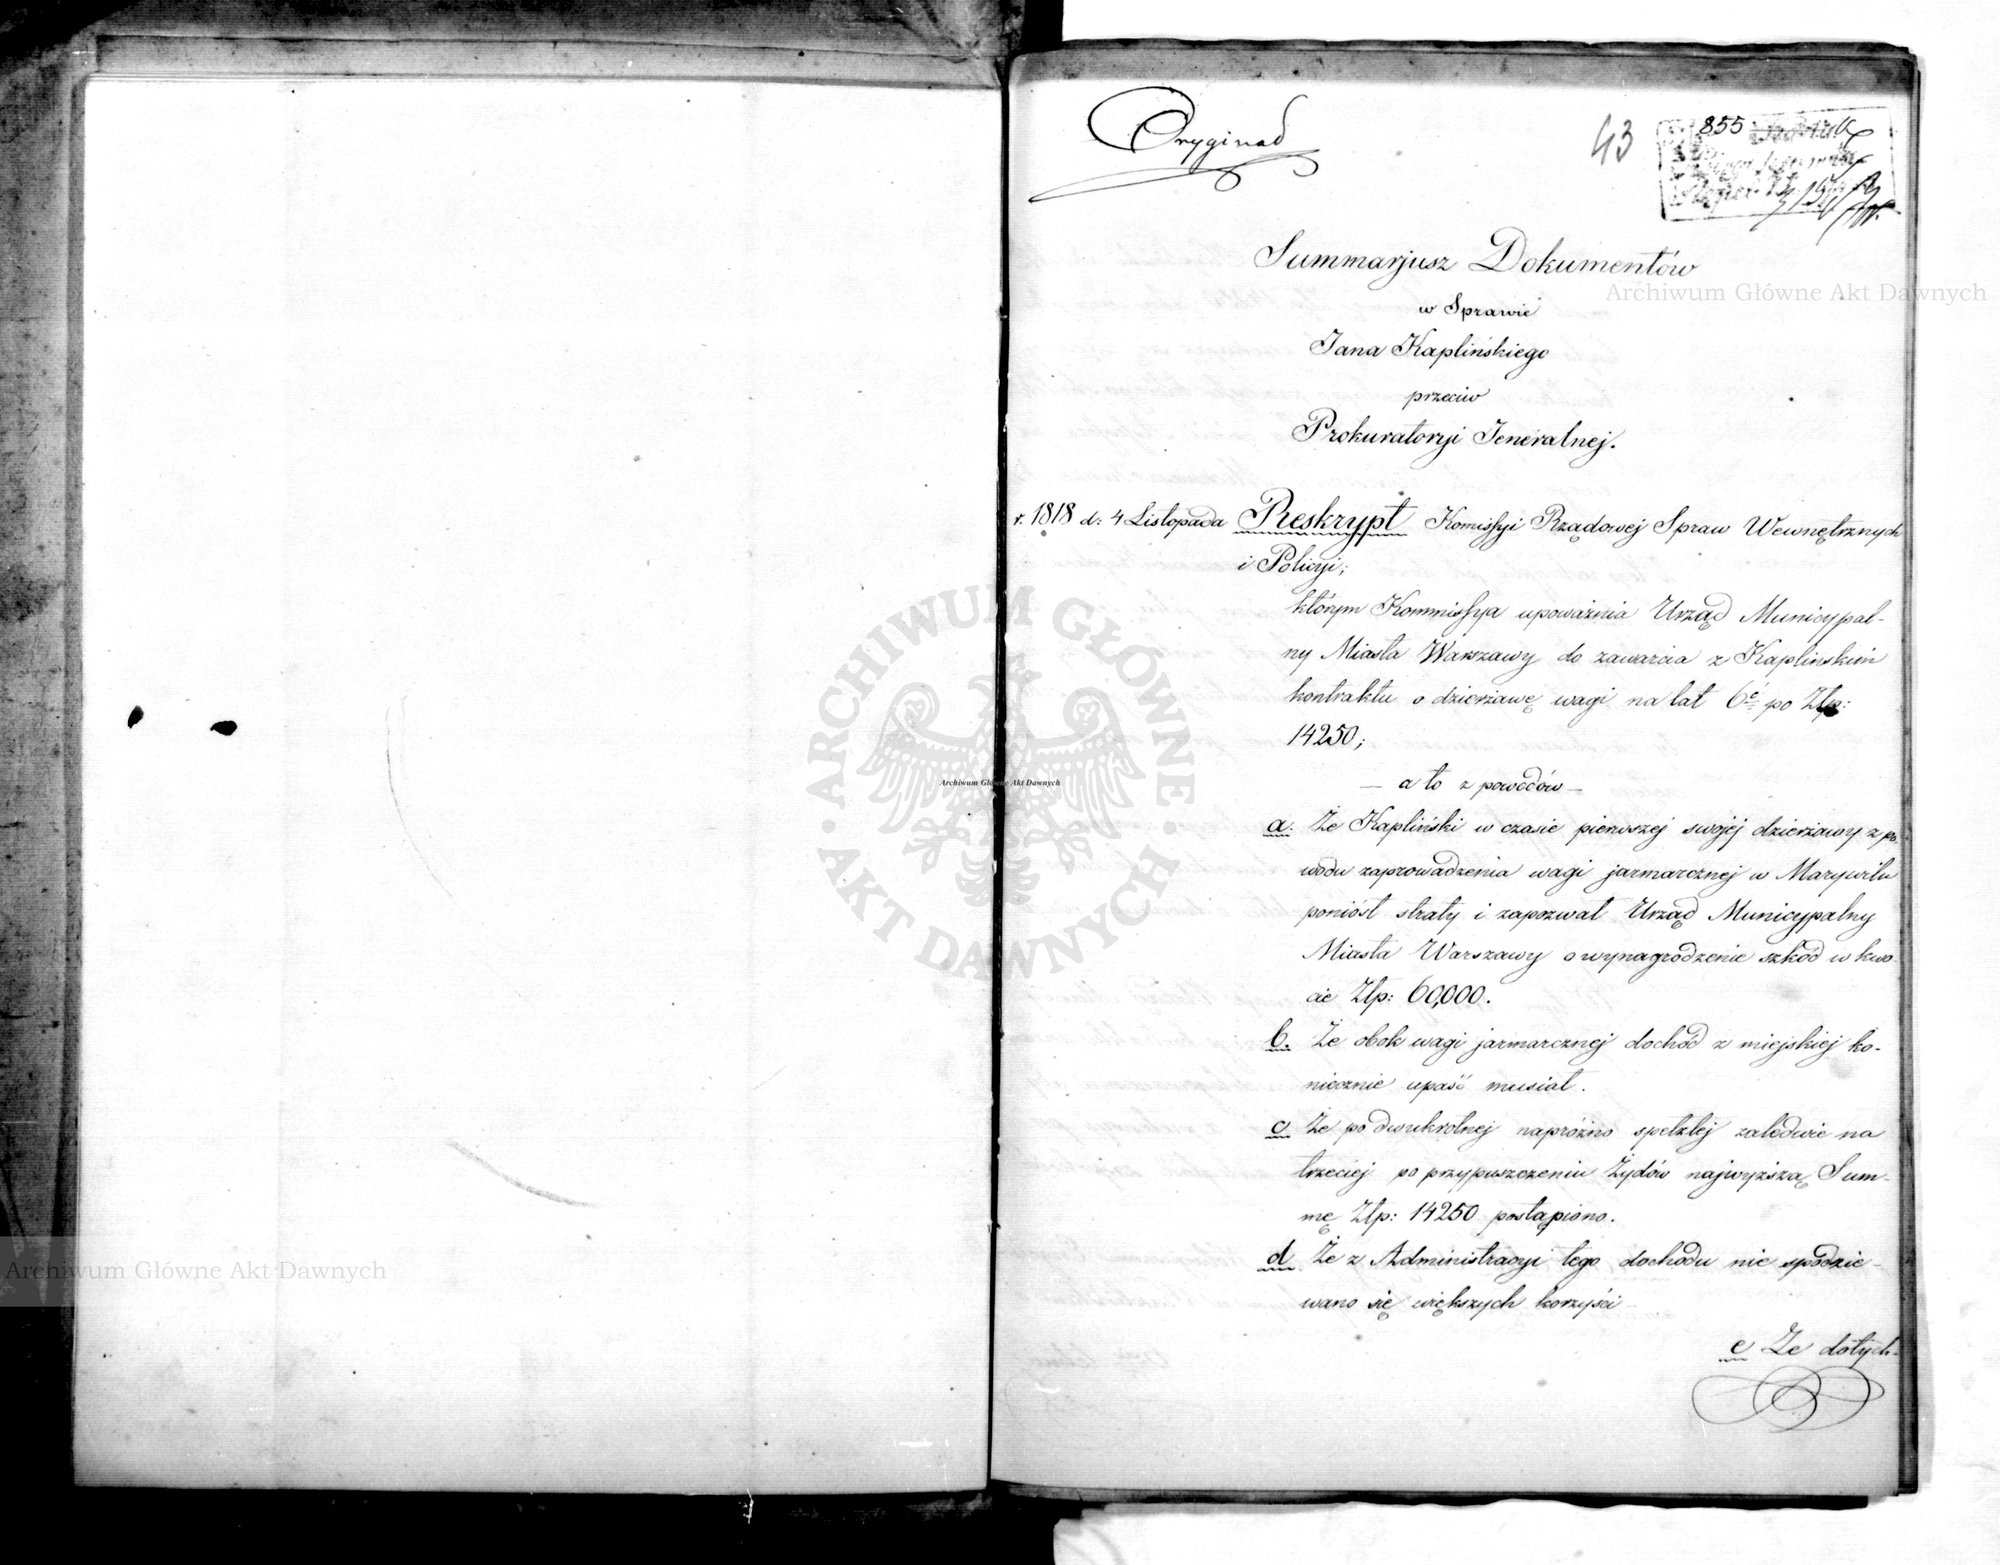 Oryginał
43
855
Summarjusz Dokumentów
w Sprawie
Jana Kaplińskiego
przeciw
Prokuratoryi Jeneralnej.
r. 1818 d: 4 Listopada Reskrypt Komissyi Rządowej Spraw Wewnętrznych
i Policyi;
którym Kommissya upoważnia Urząd Municypal-
ny Miasta Warszawy do zawarcia z Kaplińskim
kontraktu o dzierżawę wagi na lat 6ć po Zlp:
14250;
— a to z powodów —
a. Że Kapliński w czasie pierwszej swojéj dzierżawy z po-
wodu zaprowadzenia wagi jarmarcznej w Marywilu
poniósł straty i zapozwał Urząd Municypalny
Miasta Warszawy o wynagrodzenie szkód w kwo-
cie Zlp: 60,000.
b. Że obok wagi jarmarcznej dochód z miejskiej ko-
niecznie upaść musiał.
c Że po dwukrotnej napróżno spełzłej zaledwie na
trzeciej po przypuszczeniu Żydów najwyższą Sum-
mę Zlp: 14250 postąpiono.
d Że z Administracyi tego dochodu nie spodzie-
wano się większych korzyści
e Że dotych-
Archiwum Główne Akt Dawnych
Archiwum Główne Akt Dawnych
Archiwum Główne Akt Dawnych
ARCHIWUM GŁÓWNE AKT DAWNYCH